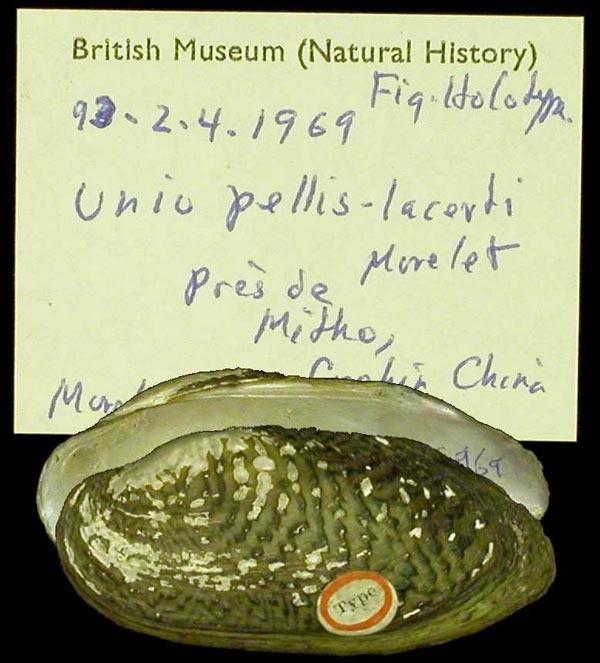 British Museum (Natural History)
Fig. Holotype.
93.2.4.1969
Unio pellis-lacerti
Morelet
Près de
Mitho,
Cochin China
Type